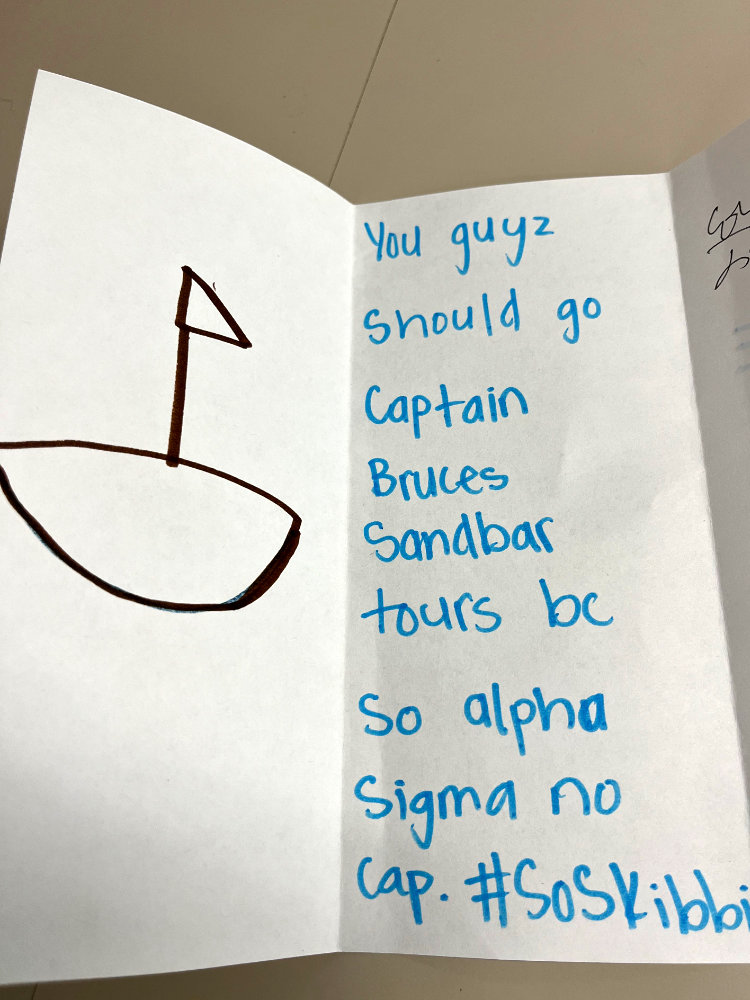 You guyz
should go
Captain
Bruces
Sandbar
tours bc
so alpha
sigma no
cap. #SoSkibbi